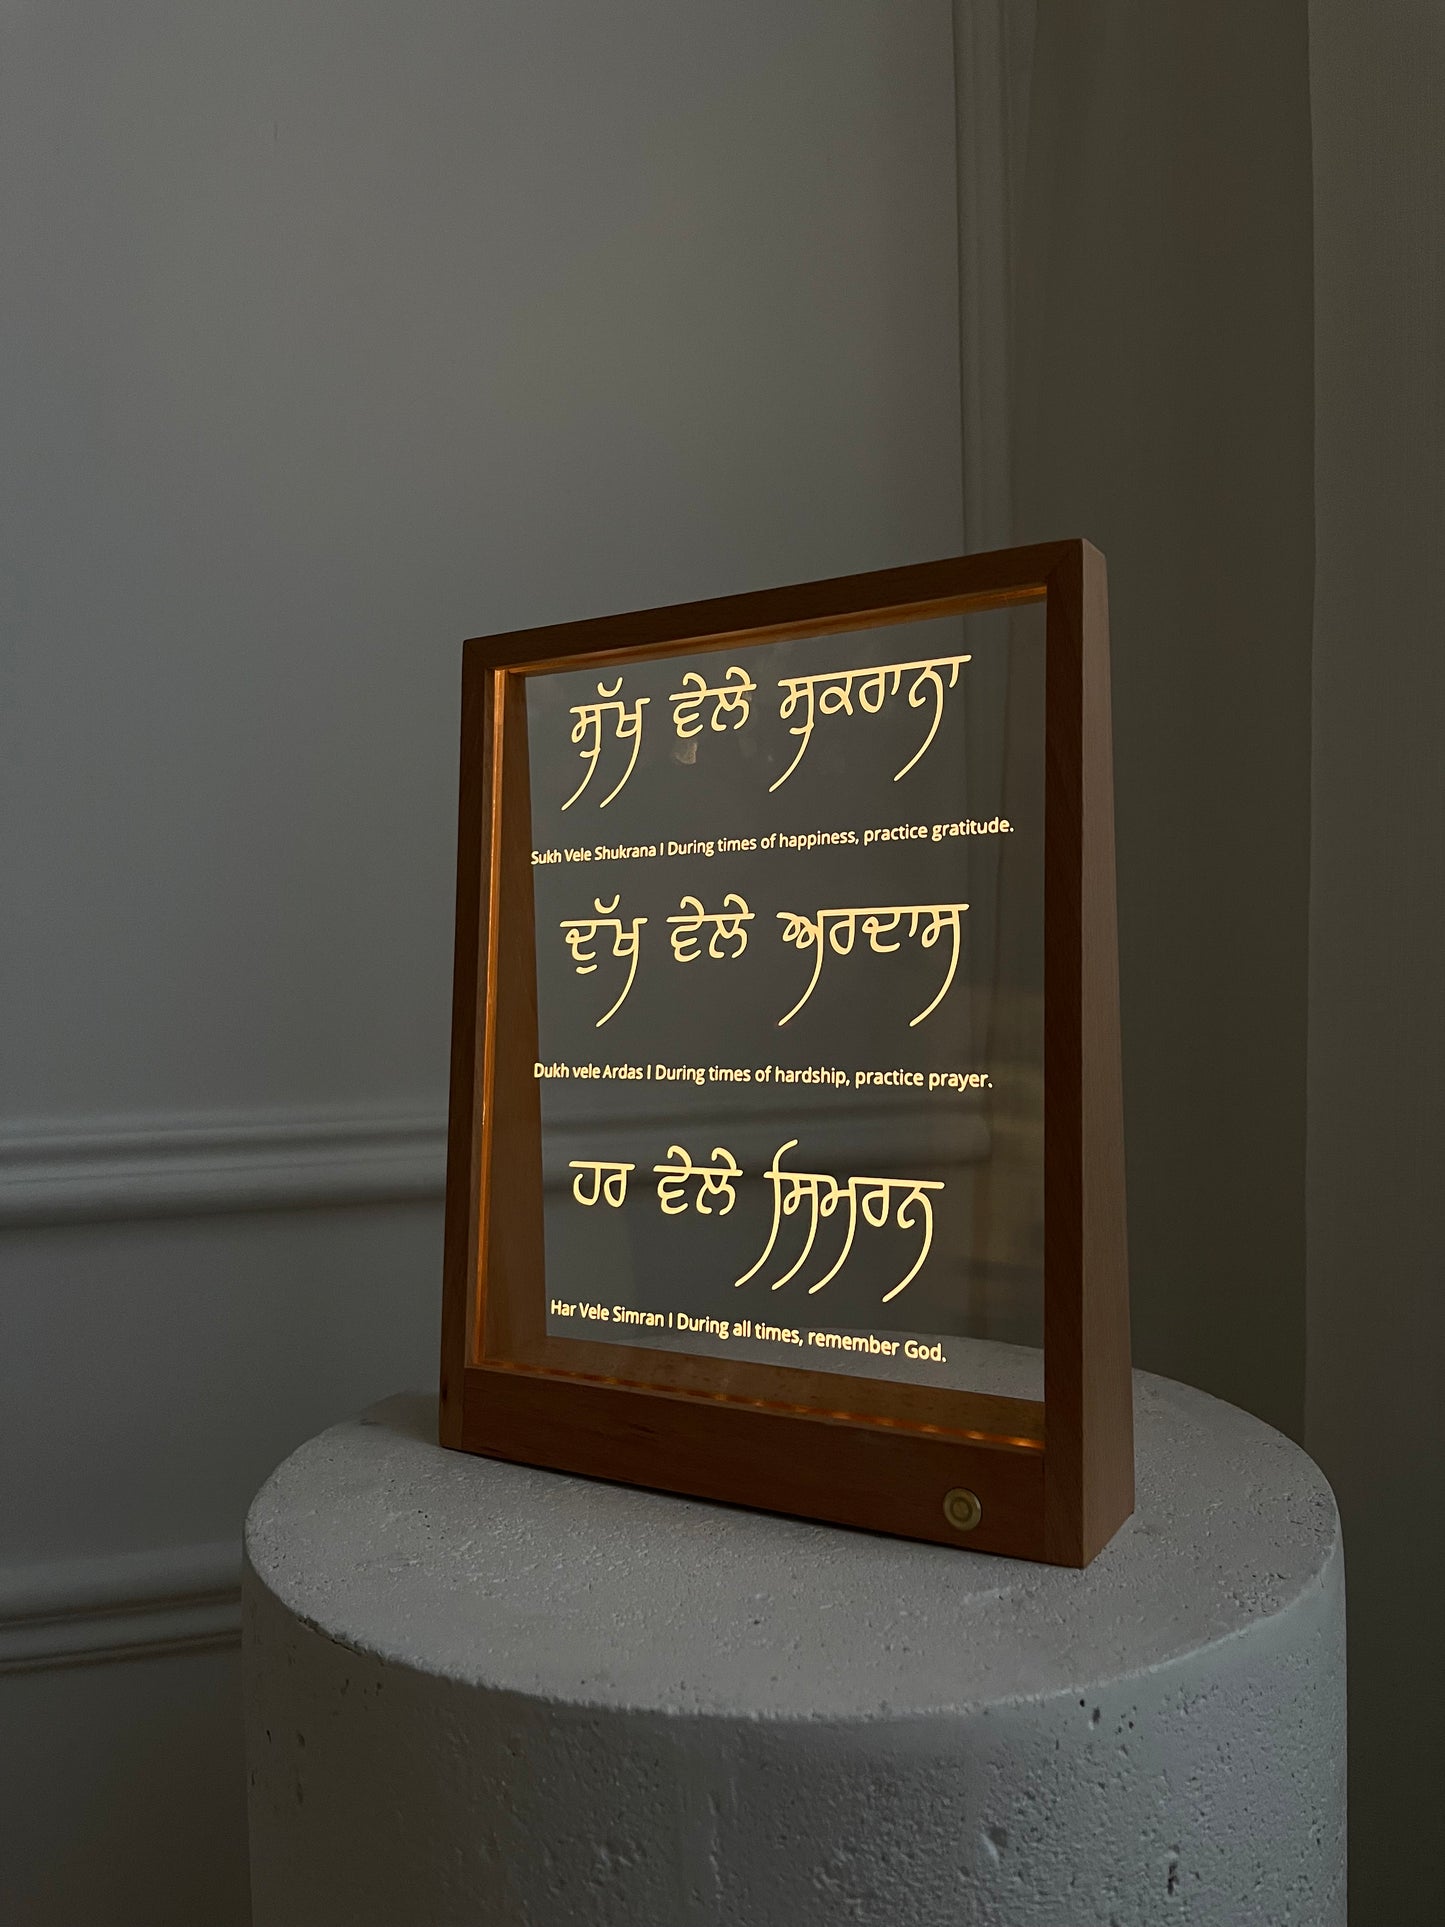 ਸੁੱਖ ਵੇਲੇ ਸੁਕਰਾਨਾ
Sukh Vele Shukrana I During times of happiness, practice gratitude.
ਦੁੱਖ ਵੇਲੇ ਅਰਦਾਸ
Dukh vele Ardas I During times of hardship, practice prayer.
ਹਰ ਵੇਲੇ ਸਿਮਰਨ
Har Vele Simran I During all times, remember God.